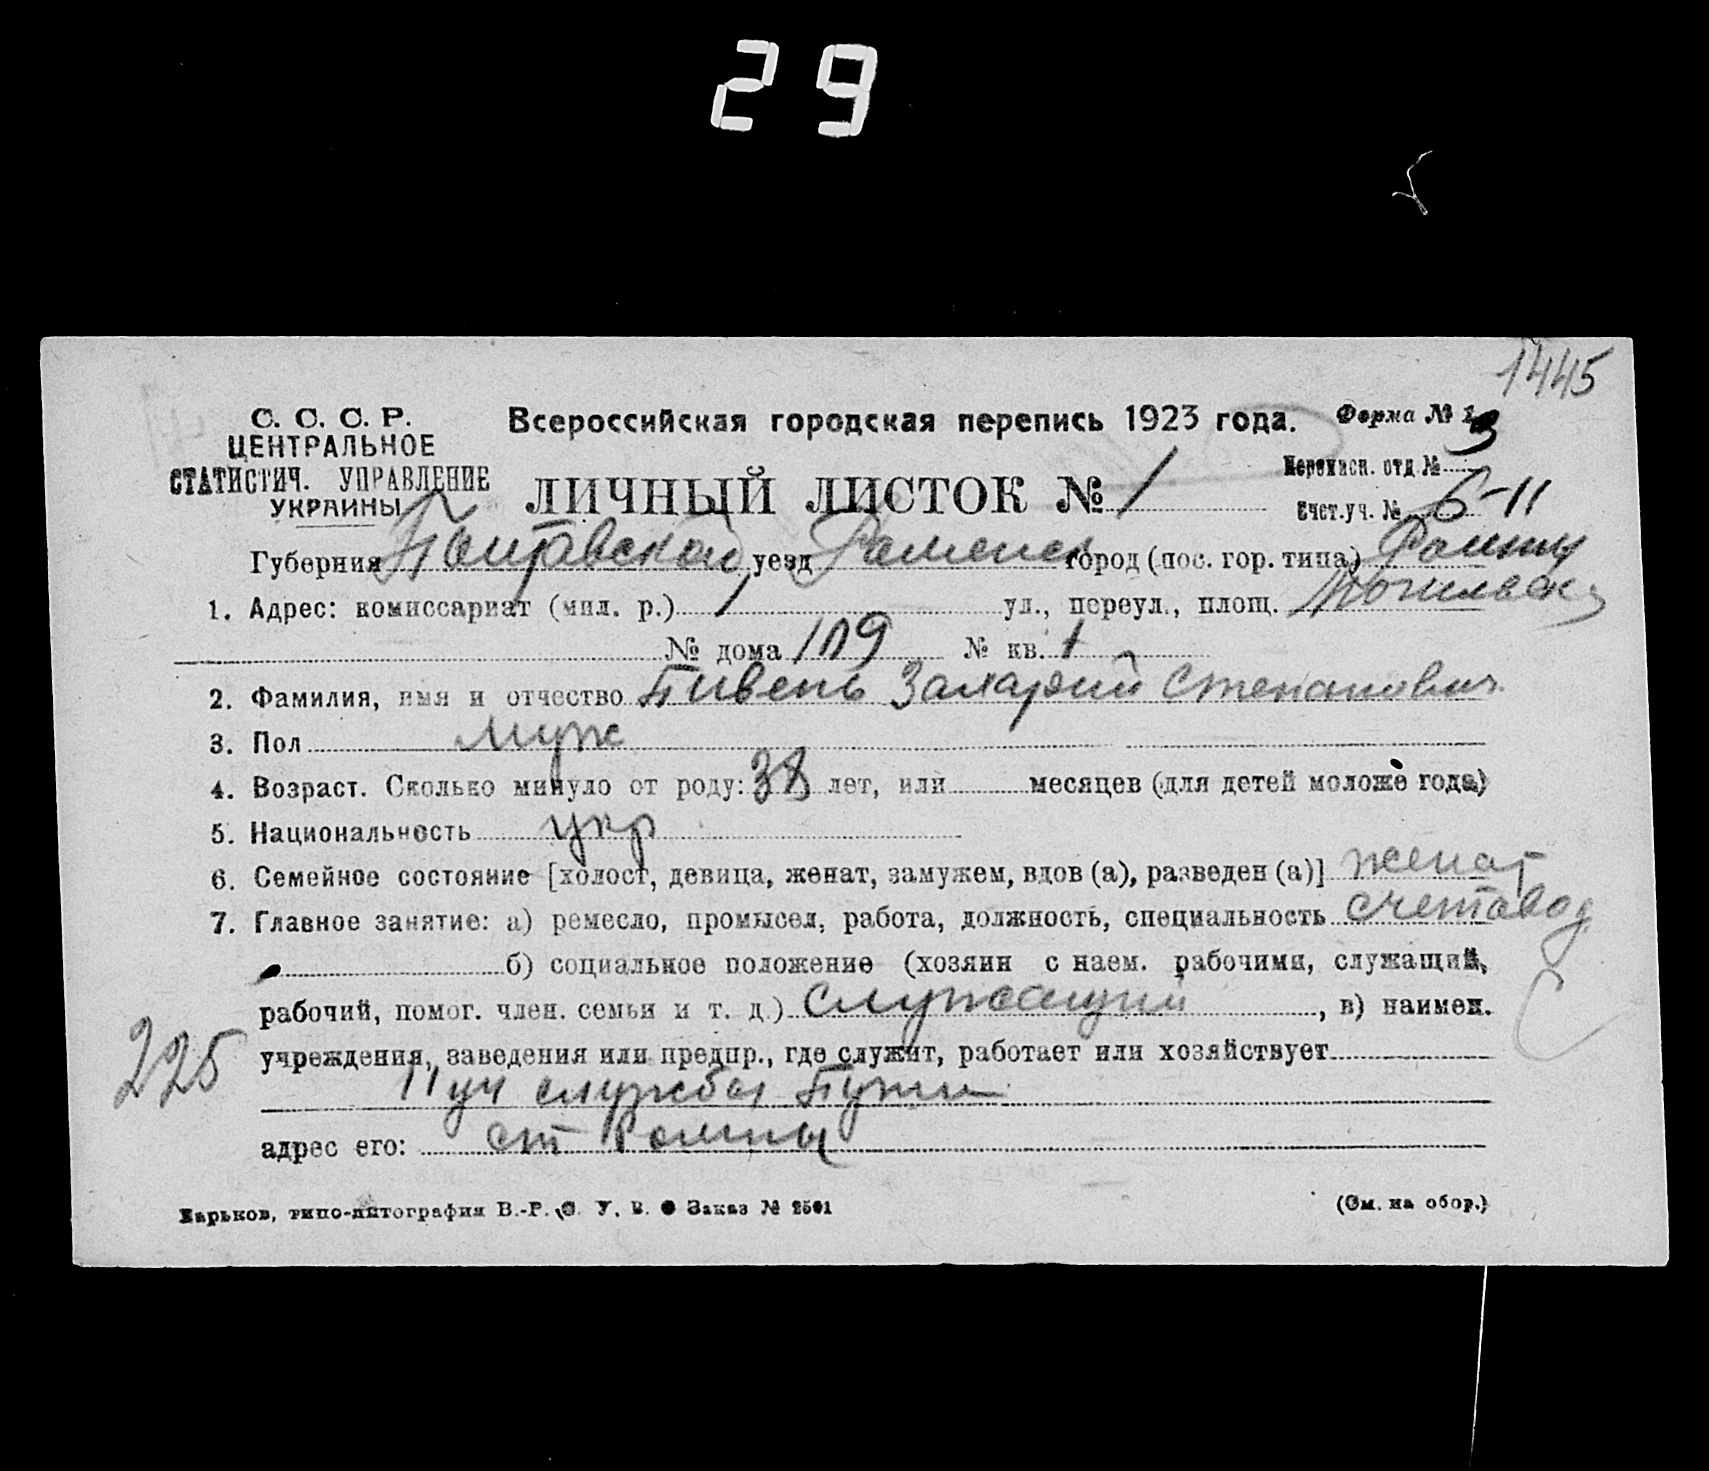 29
1445
С. С. С. Р.
ЦЕНТРАЛЬНОЕ
СТАТИСТИЧ. УПРАВЛЕНИЕ
УКРАИНЫ
Всероссийская городская перепись 1923 года.
Форма № 1
ЛИЧНЫЙ ЛИСТОК № 1
Переписн. отд № 3
Счет.уч. № 6-11
Губерния Полтавской уезд Роменск город (пос. гор. типа) Ромны
1. Адрес: комиссариат (мил. р.) 1 ул., переул., площ.
№ дома 109 № кв. 1
2. Фамилия, имя и отчество Пивень Захарий Степанович
3. Пол муж
4. Возраст. Сколько минуло от роду: 38 лет, или месяцев (для детей моложе года)
5. Национальность укр
6. Семейное состояние [холост, девица, женат, замужем, вдов (а), разведен (а)] женат
7. Главное занятие: а) ремесло, промысел, работа, должность, специальность счетовод
б) социальное положение (хозяин с наем. рабочими, служащий,
рабочий, помог. член. семьи и т. д.) служащий , в) наимен.
225
учреждения, заведения или предпр., где служит, работает или хозяйствует
11 уч службы Пути
адрес его: ст Ромны
Харьков, типо-литография В.-Р. У. Заказ № 2501
(См. на обор.)